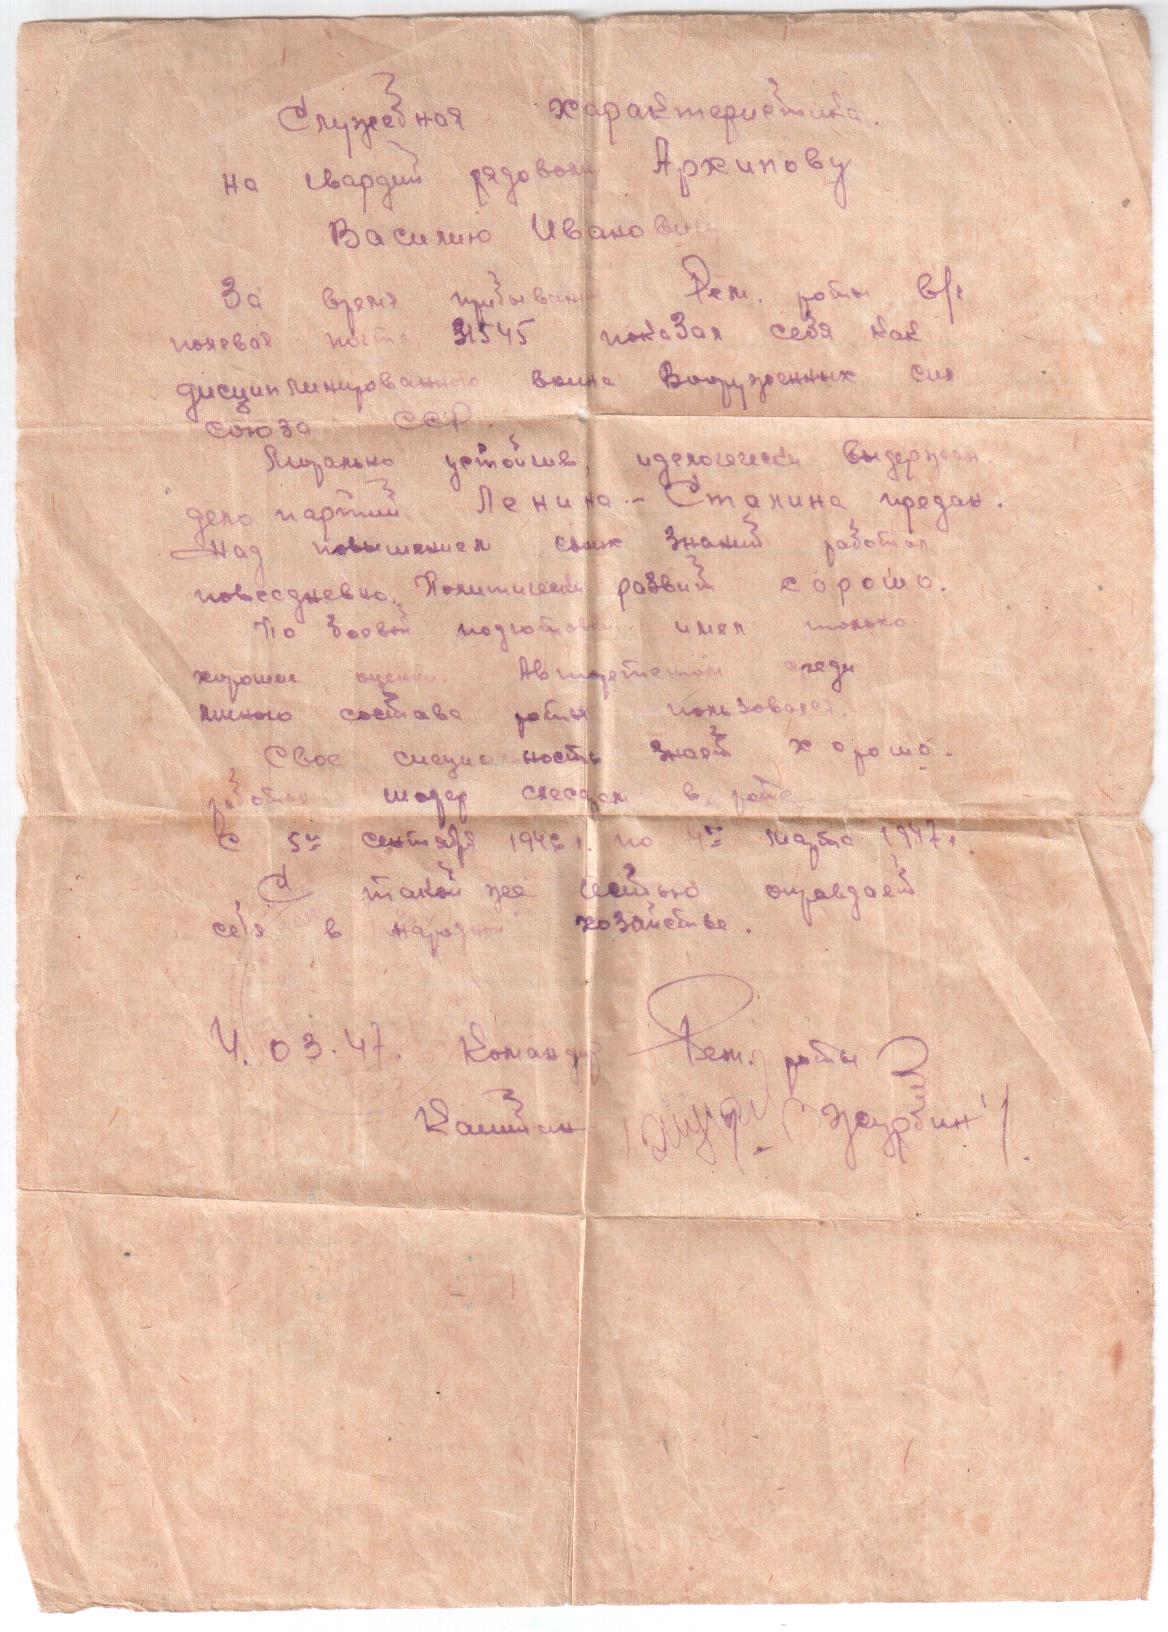 Служебная характеристика.
на гвардии рядовом Архипову
Василию Иванович
За время пребывани Рем. роты в/ч
полевая почт. 31545 показал себя как
дисциплинированного воина Вооруженных сил
союза ССР.
Морально устойчив, идеологически выдержан.
делу партии Ленина - Сталина предан.
Над повышением своих знаний работал
повседневно. Политически развит хорошо.
По боевой подготовки имел только
хорошие оценки. Авторитетом среди
личного состава роты пользовался.
Свое специальность знает хорошо.
работал слесарем в роте
С 5го сентября 194 г. по 4го марта 1947г.
С такой же честью оправдает
себя в народном хозяйстве.
4.03.47. Командир Рем. роты
Капитан